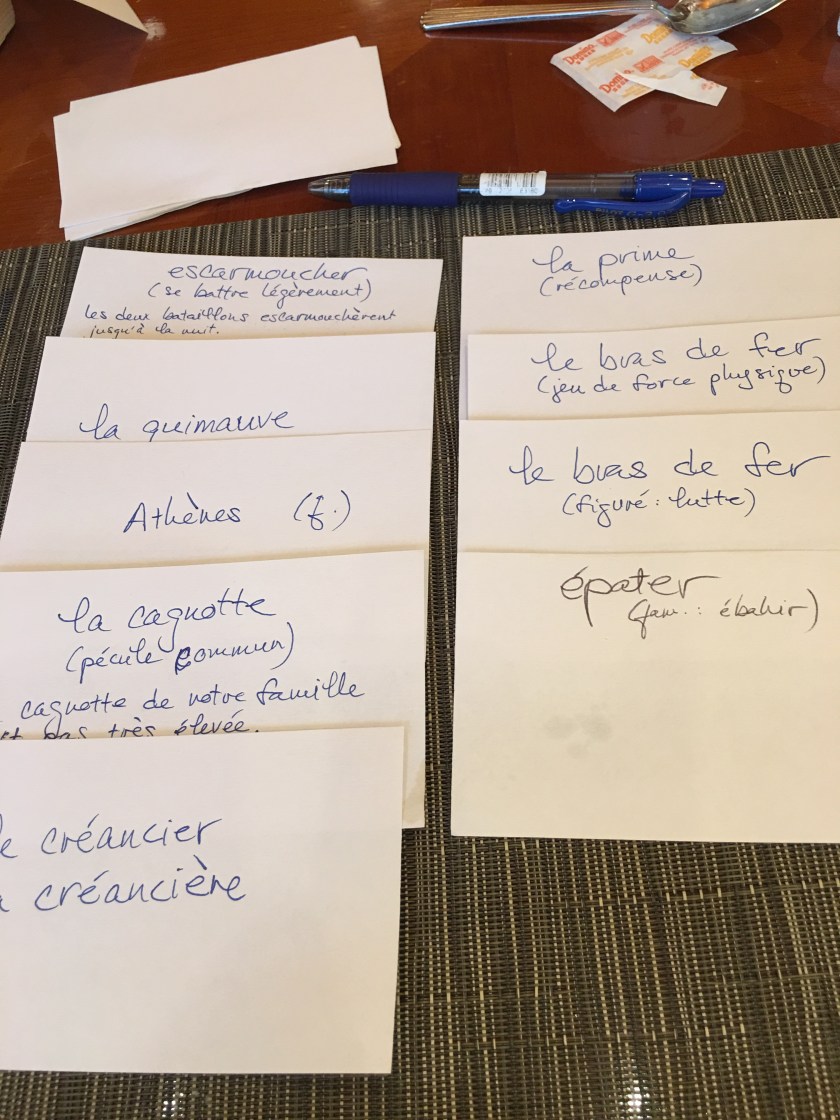 Domino
Domino
escarmoucher
(se battre légèrement)
les deux bataillons escarmouchèrent
jusqu'à la nuit.
la guimauve
Athènes (f.)
la cagnotte
(pécule commun)
cagnotte de notre famille
pas très élevée.
créancier
créancière
la prime
(récompense)
le bras de fer
(jeu de force physique)
le bras de fer
(figuré : lutte)
épater
(fam. : ébahir)